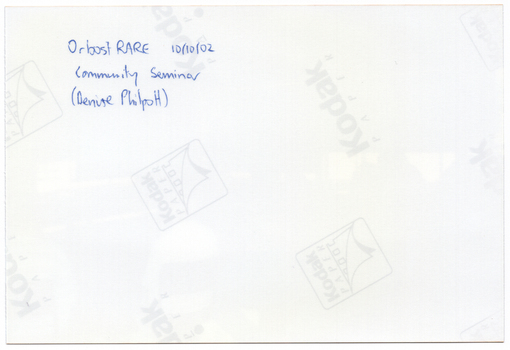 Orbost RARE 10/10/02
Community Seminar
(Denise Philpott)
Kodak
Kodak
Kodak PAPER PAPIER
Kodak PAPER PAPIER
Kodak
Kodak
Kodak